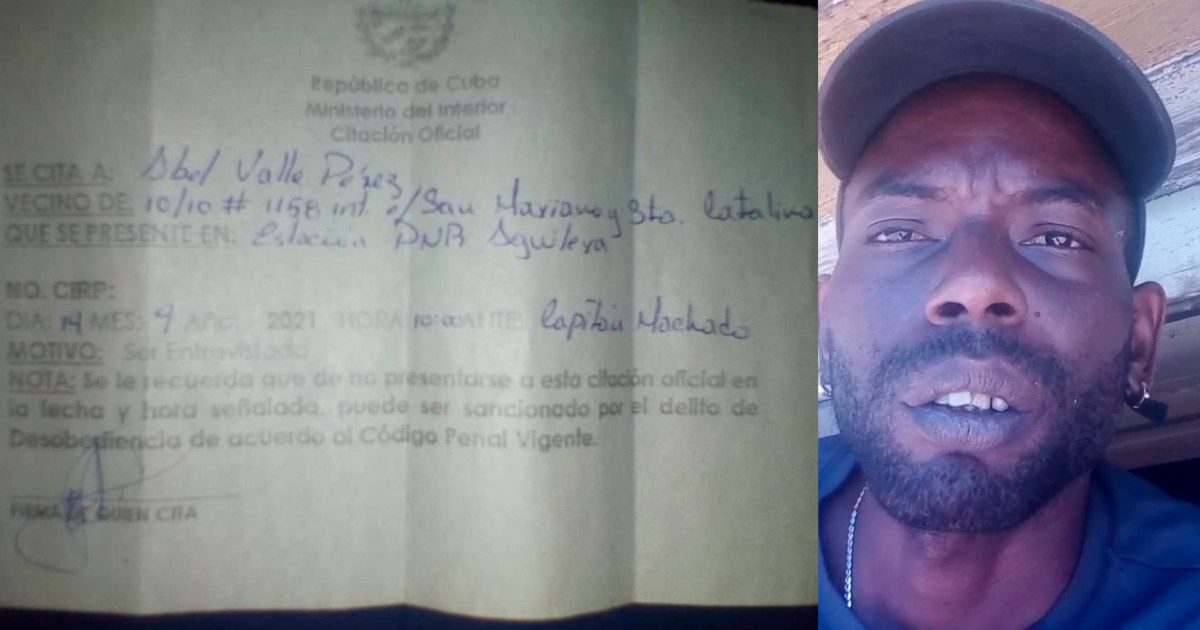 República de Cuba
Ministerio del Interior
Citación Oficial
SE CITA A: Abel Valle Pérez
VECINO DE: 10/10 # 1158 int. e/ San Mariano y Sta. Catalina
QUE SE PRESENTE EN: Estación PNR Aguilera
NO. CIRP:
DIA: 14 MES: 4 Año: 2021 HORA 10:00 ANTE: Capitán Machado
MOTIVO: Ser Entrevistado
NOTA: Se le recuerda que de no presentarse a esta citación oficial en
la fecha y hora señalada, puede ser sancionado por el delito de
Desobediencia de acuerdo al Código Penal Vigente.
FIRMA DE QUIEN CITA